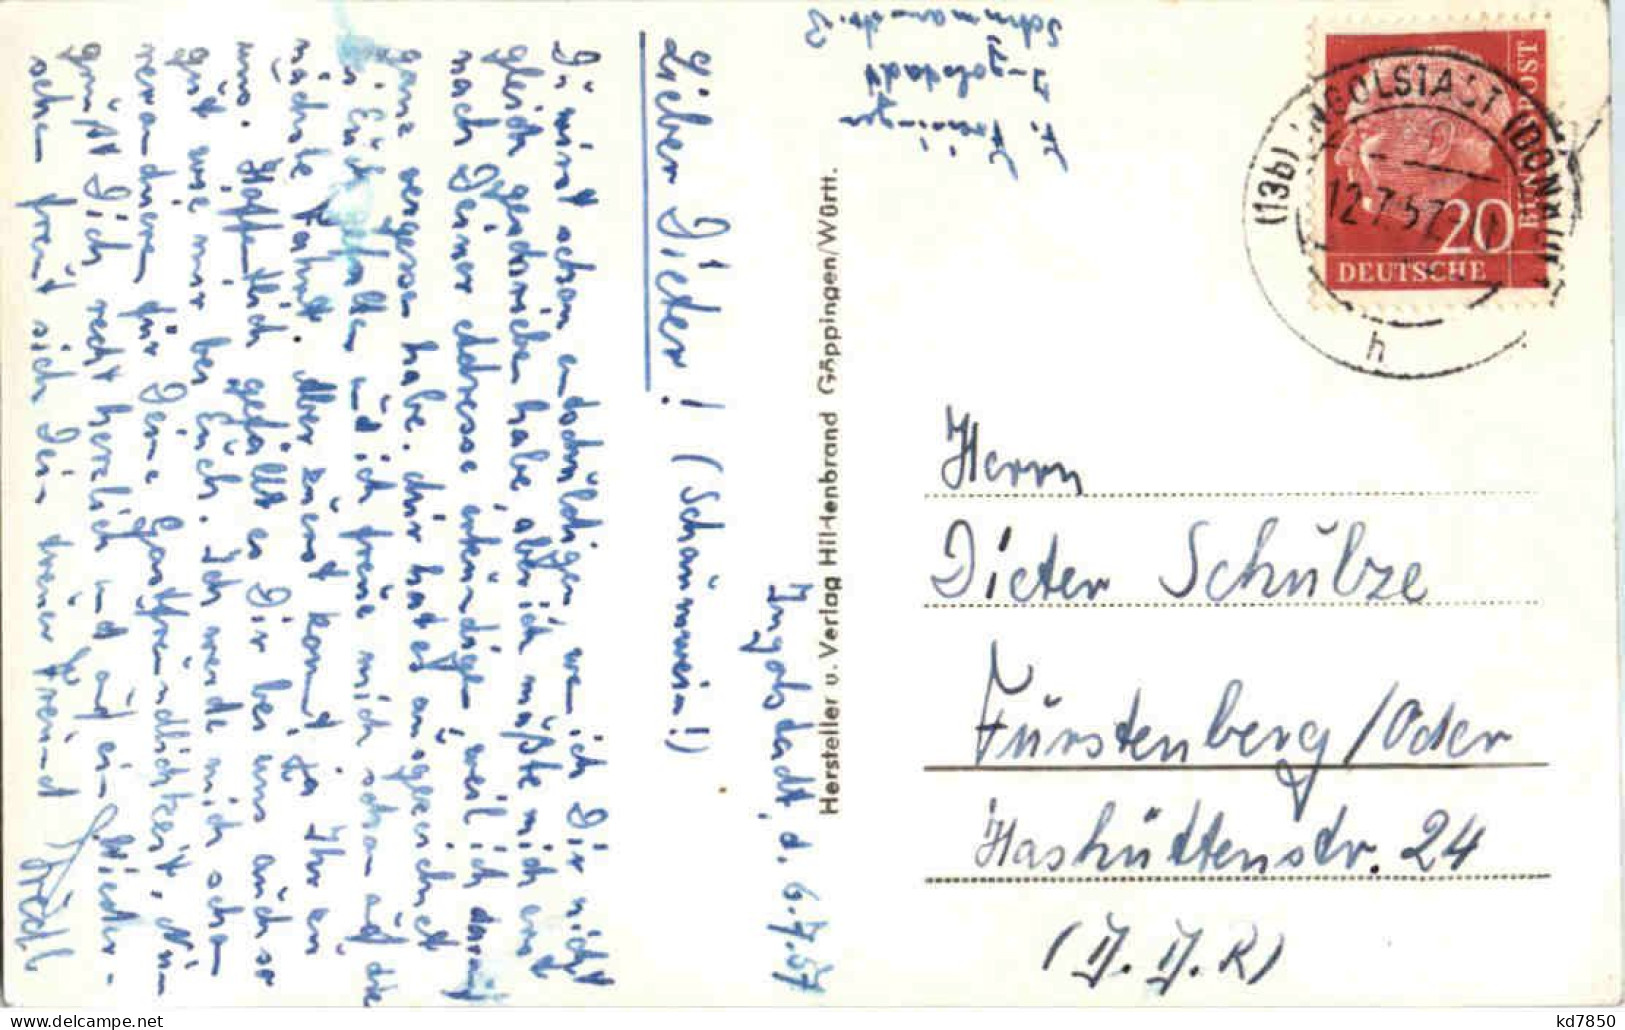 F. Freisinger
Ingolstadt
(13b) INGOLSTADT (DONAU)
12.7.57
h
DEUTSCHE
BUNDESPOST
20
Hersteller u. Verlag Hillenbrand Göppingen/Württ.
Ingolstadt, d. 6.7.57
Lieber Dieter! (Schaumwein!)
Du wirst schon entschuldigen, wenn ich Dir nicht
gleich geschrieben habe, aber ich mußte mich erst
nach Deiner Adresse erkundigen, weil ich darauf
ganz vergessen habe. Mir hat es ausgezeichnet
in Euch gefallen und ich freue mich schon auf die
nächste Fahrt. Aber zuerst kommt ja Ihr zu
uns. Hoffentlich gefällt es Dir bei uns auch so
gut wie mir bei Euch. Ich werde mich schon
revanchieren für Deine Gastfreundlichkeit. Nun
grüßt Dich recht herzlich und auf ein Wieder-
sehen freut sich Dein treuer Freund
Herrn
Dieter Schulze
Fürstenberg/Oder
Hashüttenstr. 24
(D.D.R)
kd7850